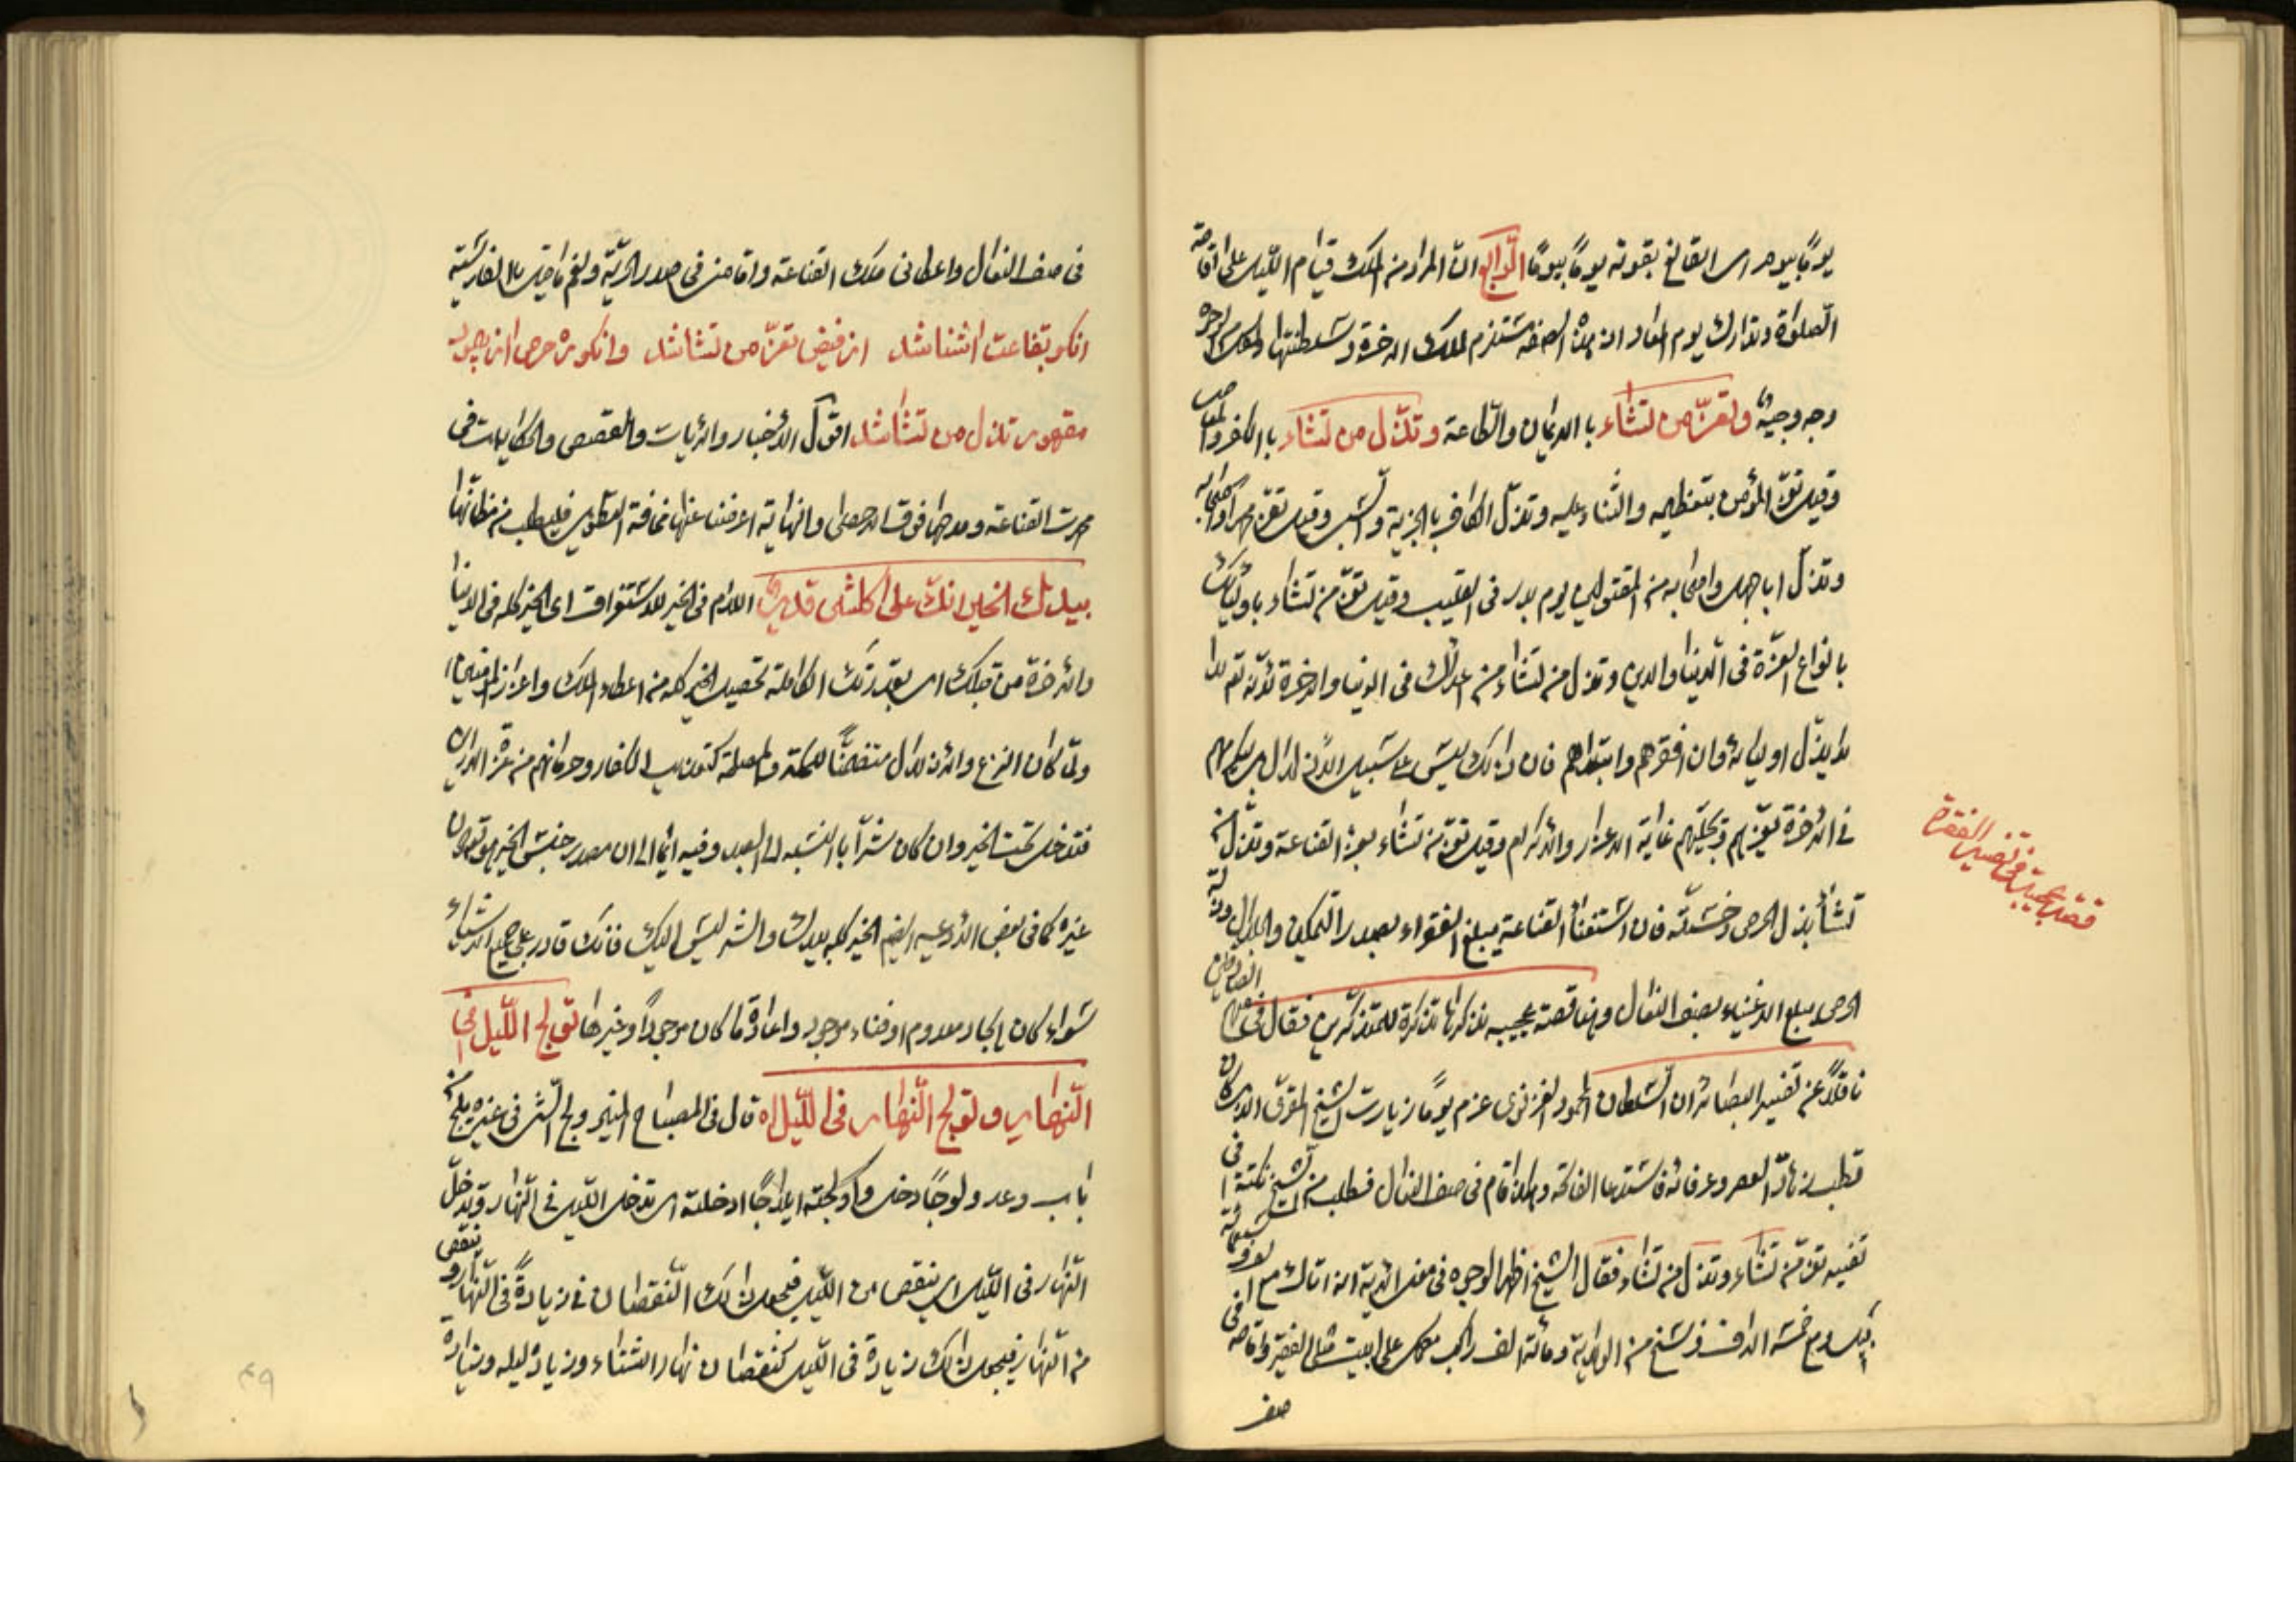 يومًا بيوم اى القانع بقوته يومًا بيومًا الرّابع انّ المراد من الملك قيام الليل على اقامة
الصلوة وتدارك يوم المعاد اذ هذه الصفة تستلزم لملك الاخرة وسلطنتها
وجه وجيه وتعزّ من تشاء با الايمان والطّاعة وتذّل من تشاء با الكفر والمعاصى
وقيل تعزّ المؤمن بتعظيمه والثناء عليه وتذّل الكافر با الجزية والسّبى وقيل تعزّ محمد واصحابه
وتذلّ ابا جهل واصحابه من المقتولين يوم بدر فى القليب وقيل تعزّ من تشاء باوليائك
بانواع العزّة فى الدّنيا والدين وتذل من تشاء من اعدائك فى الدنيا والاخرة لانّه تع
لا يذّل اوليائه وان افقرهم وابتلاهم فان ذالك ليس على سبيل الاذلال بل يكرمهم
فى الاخرة بعزّهم ويجلّهم غاية الاعزاز والاكرام وقيل تعزّ من تشاء بعزّ القناعة وتذل من
تشاء بذل الحرص وخسّته فان استغناء القناعة يبلغ الفقراء بصدر التمكين والجلال
الحرص يبلغ الاغنياء بصف النعال وهنا قصة عجيبه نذكرها تذكرة للمتذكّرين فقال فى
ناقلًا عن تفسير البصائر ان السّلطان المحمود الغزنوى عزم يومًا زيارت الشيخ
قطب زمانه العصر وعرفائه فاستدعا الفاتحة و اقام فى صف النعال فطلب من الشيخ نكتة فى
تفسير تعزّ من تشاء وتذل من تشاء فقال الشيخ اظهر الوجوه فى معنى الاية ان اتاك مع
فيل ومع خمسة الاف فرسخ من الولاية ومائة الف راكب على بيت مثلى الفقير واقامه فى
صف
قصة عجيبة فى تفسير الفقرة
فى صف النعال واعطانى ملك القناعة واقامنى فى صدر الحريّة ولنعم ما قيل با الفارسيّة
انكو بقناعت اشنا شد از فيض تعزّ من تشا شد وانكو بره حرص از
مقهور تذل من تشا شد اقول الاخبار والايات والقصص والحكايات فى
مدح القناعة و فوق الاحصاء والنهاية اعرضنا عنها مخافة التطويل فليطلب من مظانّها
بيدك الخير انك على كلّشى قدير اللام فى الخير للاستغراق اى الخير كله فى الدنيا
والاخرة من قبلك اى بقدرتك الكاملة تحصيل الخير كله من اعطاء الملك واعزاز
ولمّا كان النزع والاذلال متضمنًا للحكمة والمصلحة كتعذيب الكفار وحرمانهم من عزّ الدارين
فتدخل تحت الخير وان كان شرّا با النسبه الى العبد وفيه ايما الى ان مصدر جنس الخير هو تع دون
غيره كما فى بعض الادعيه الخير كله بيدك والشر ليس اليك فانك قادر على جميع الاشياء
سواء كان ايجاد معدوم او فناء موجود واعادة ما كان موجودًا وغيرها تولج اللّيل فى
النّهار وتولج النّهار فى اللّيل اه قال فى المصباح المنير ولج الشى فى غيره يلج من
باب وعد ولوجًا دخل واولجته ايلاجًا ادخلته اى تدخل الليل فى النّهار وتدخل
النّهار فى الليل اى ينقص من الليل فيجعل ذالك النّقصان فى زيادة فى النّهار وينقص
من النّهار فيجعل ذالك زيادة فى الليل كنقصان نهار الشتاء وزيادة ليله وزيادة
٤٩